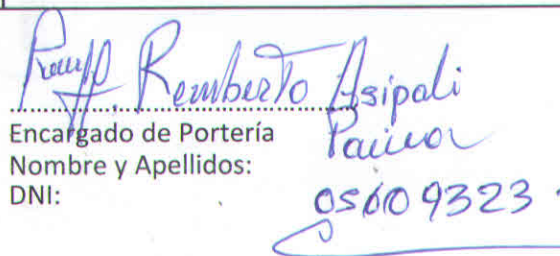 Remberto Asipali
Encargado de Portería
Nombre y Apellidos:
DNI: 05609323